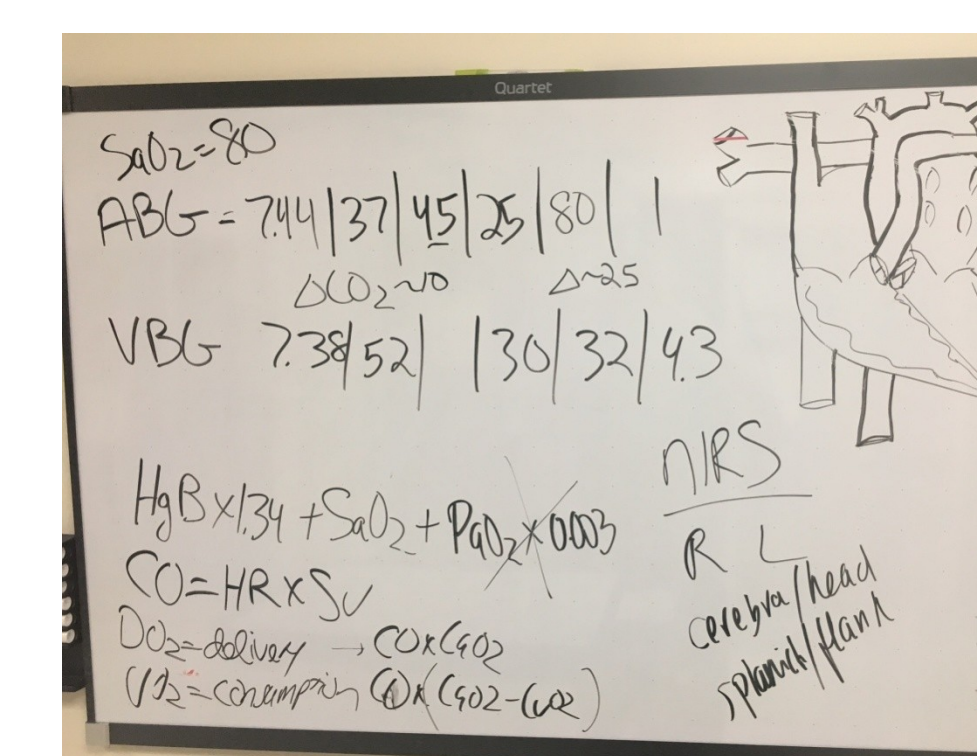 Quartet
SaO2=80
ABG = 7.44|37|45|25|80| |
ΔCO2~10 Δ~25
VBG 7.38|52| |30|32|4.3
HgB×1.34 + SaO2 + PaO2×0.003
CO=HR×SV
DO2=delivery → CO×CaO2
VO2=consumption CO×(CaO2-CvO2)
NIRS
R L
cerebra/head
splanich/flank